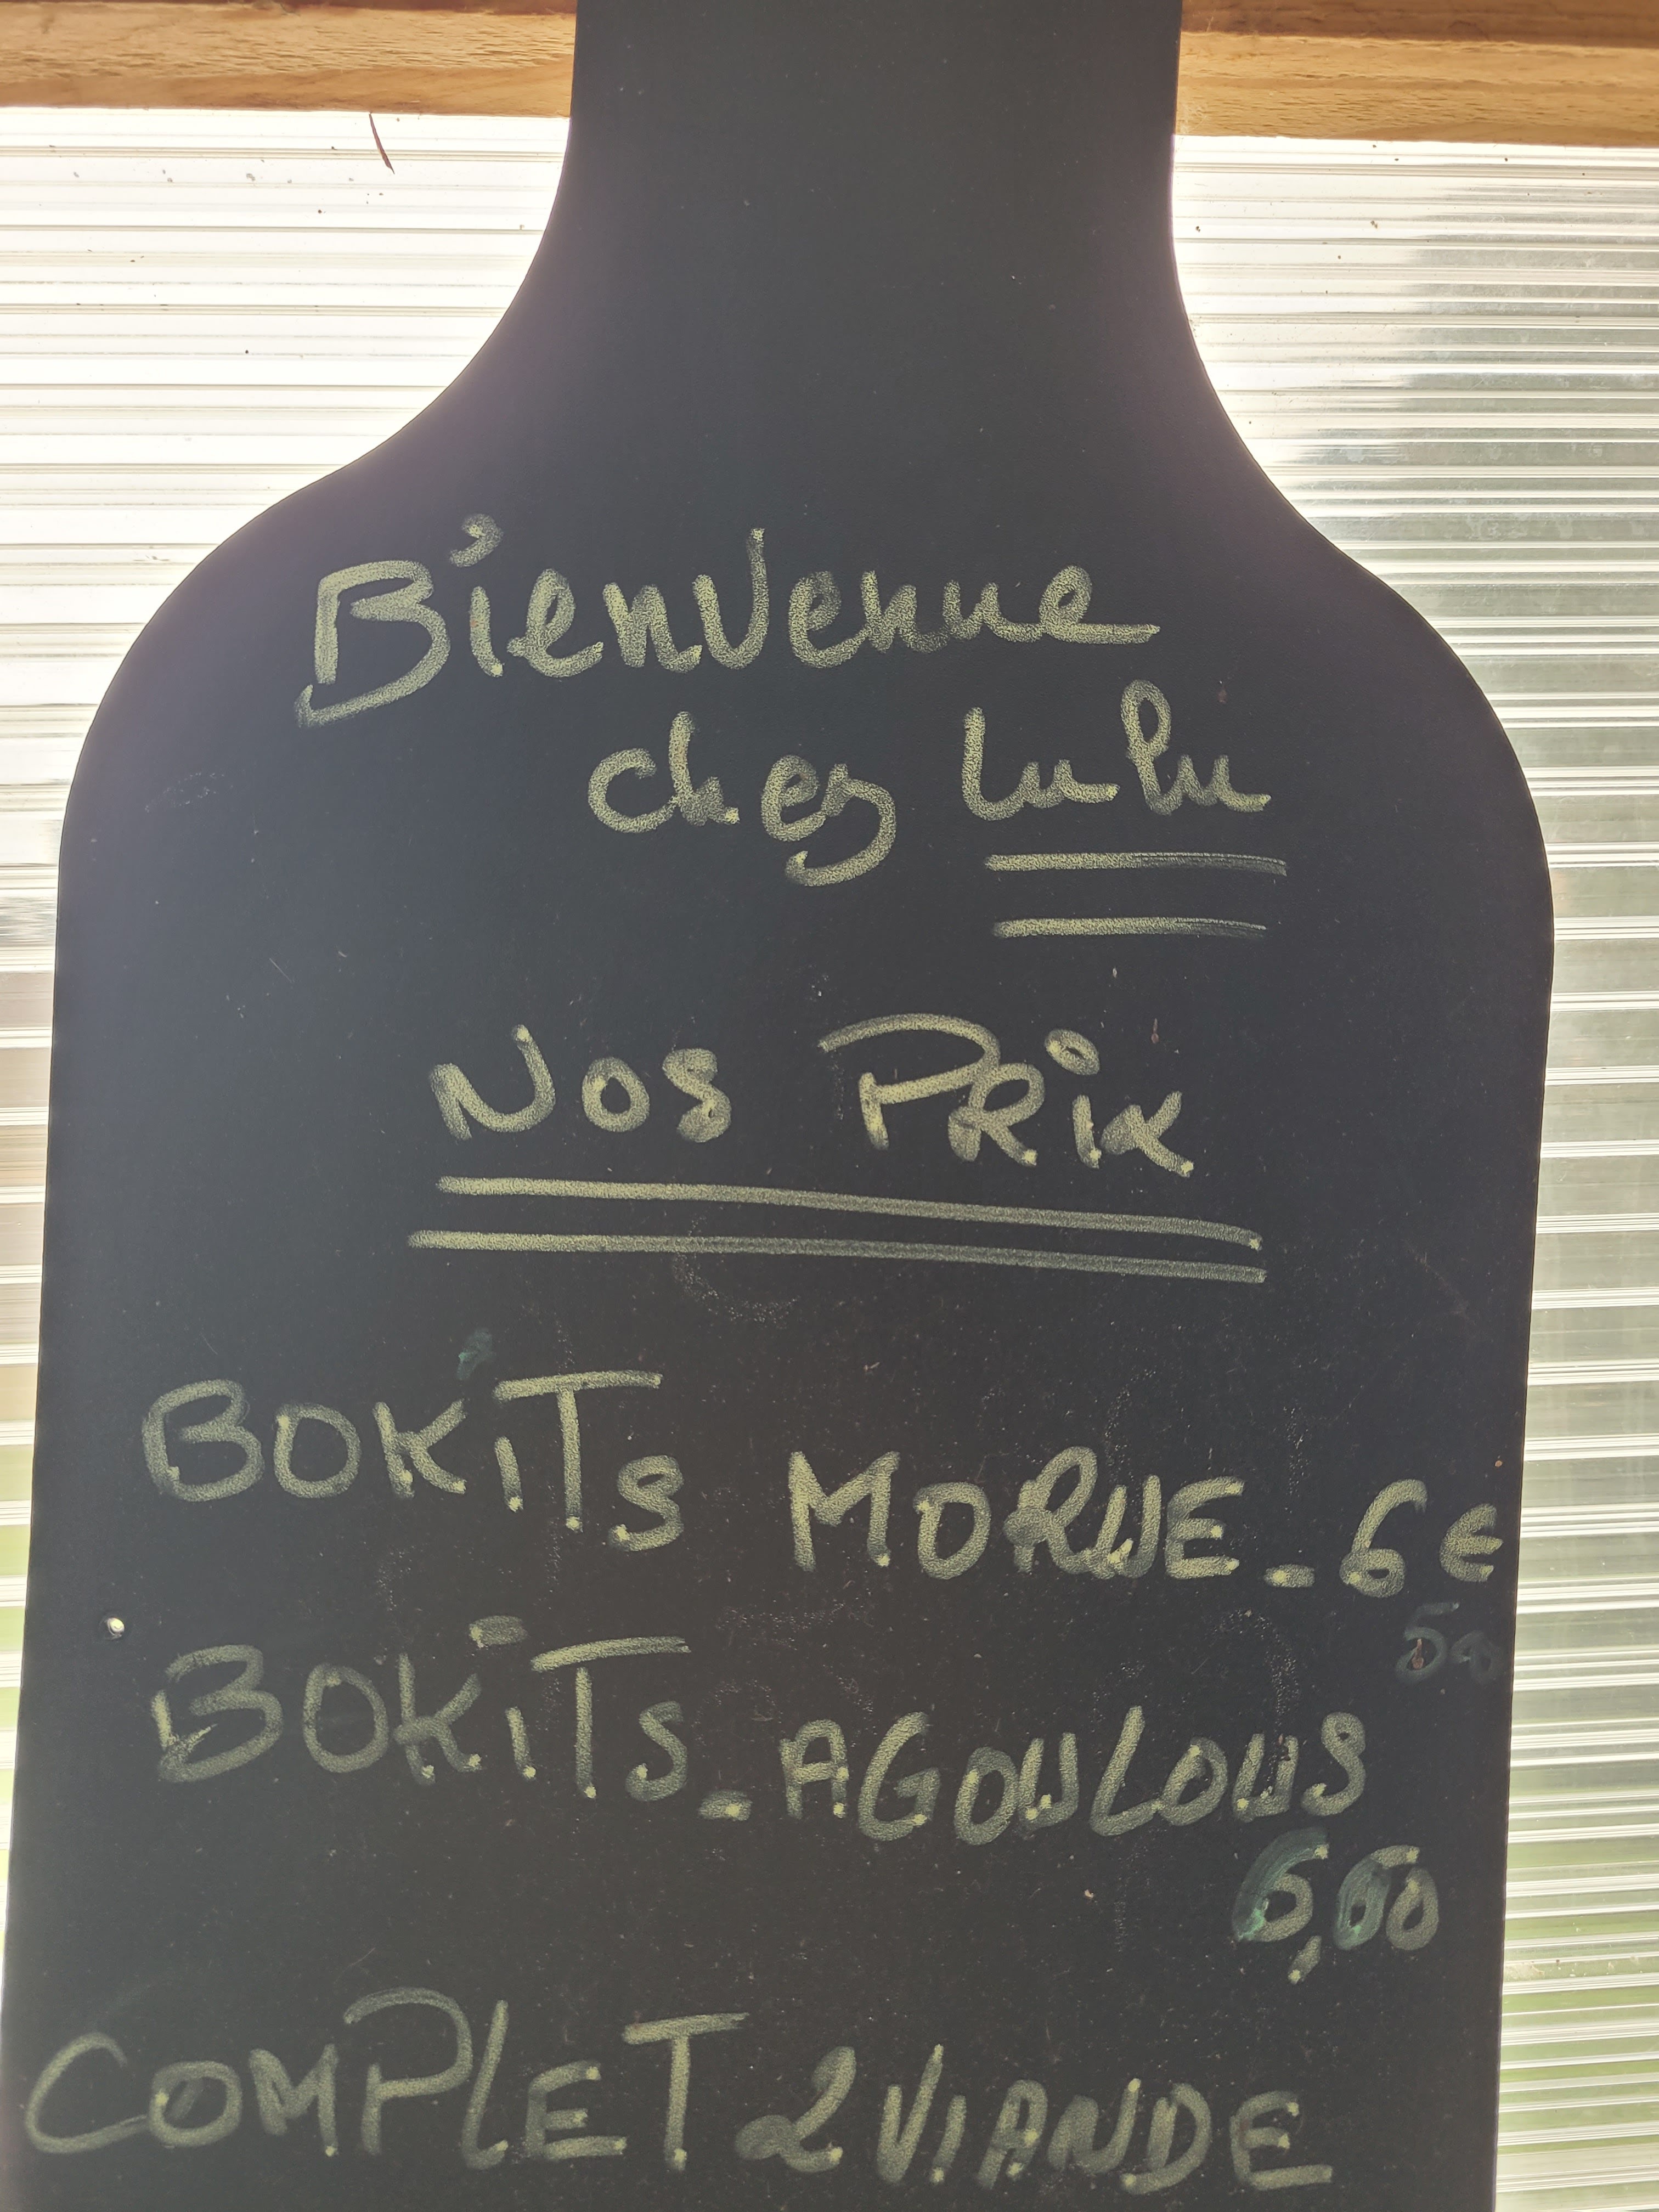 Bienvenue
chez Lulu
Nos PRix
BOKiTs MORUE - 6 €
50
BOKiTs - AGOULOUS
6,00
COMPLET 2 VIANDE